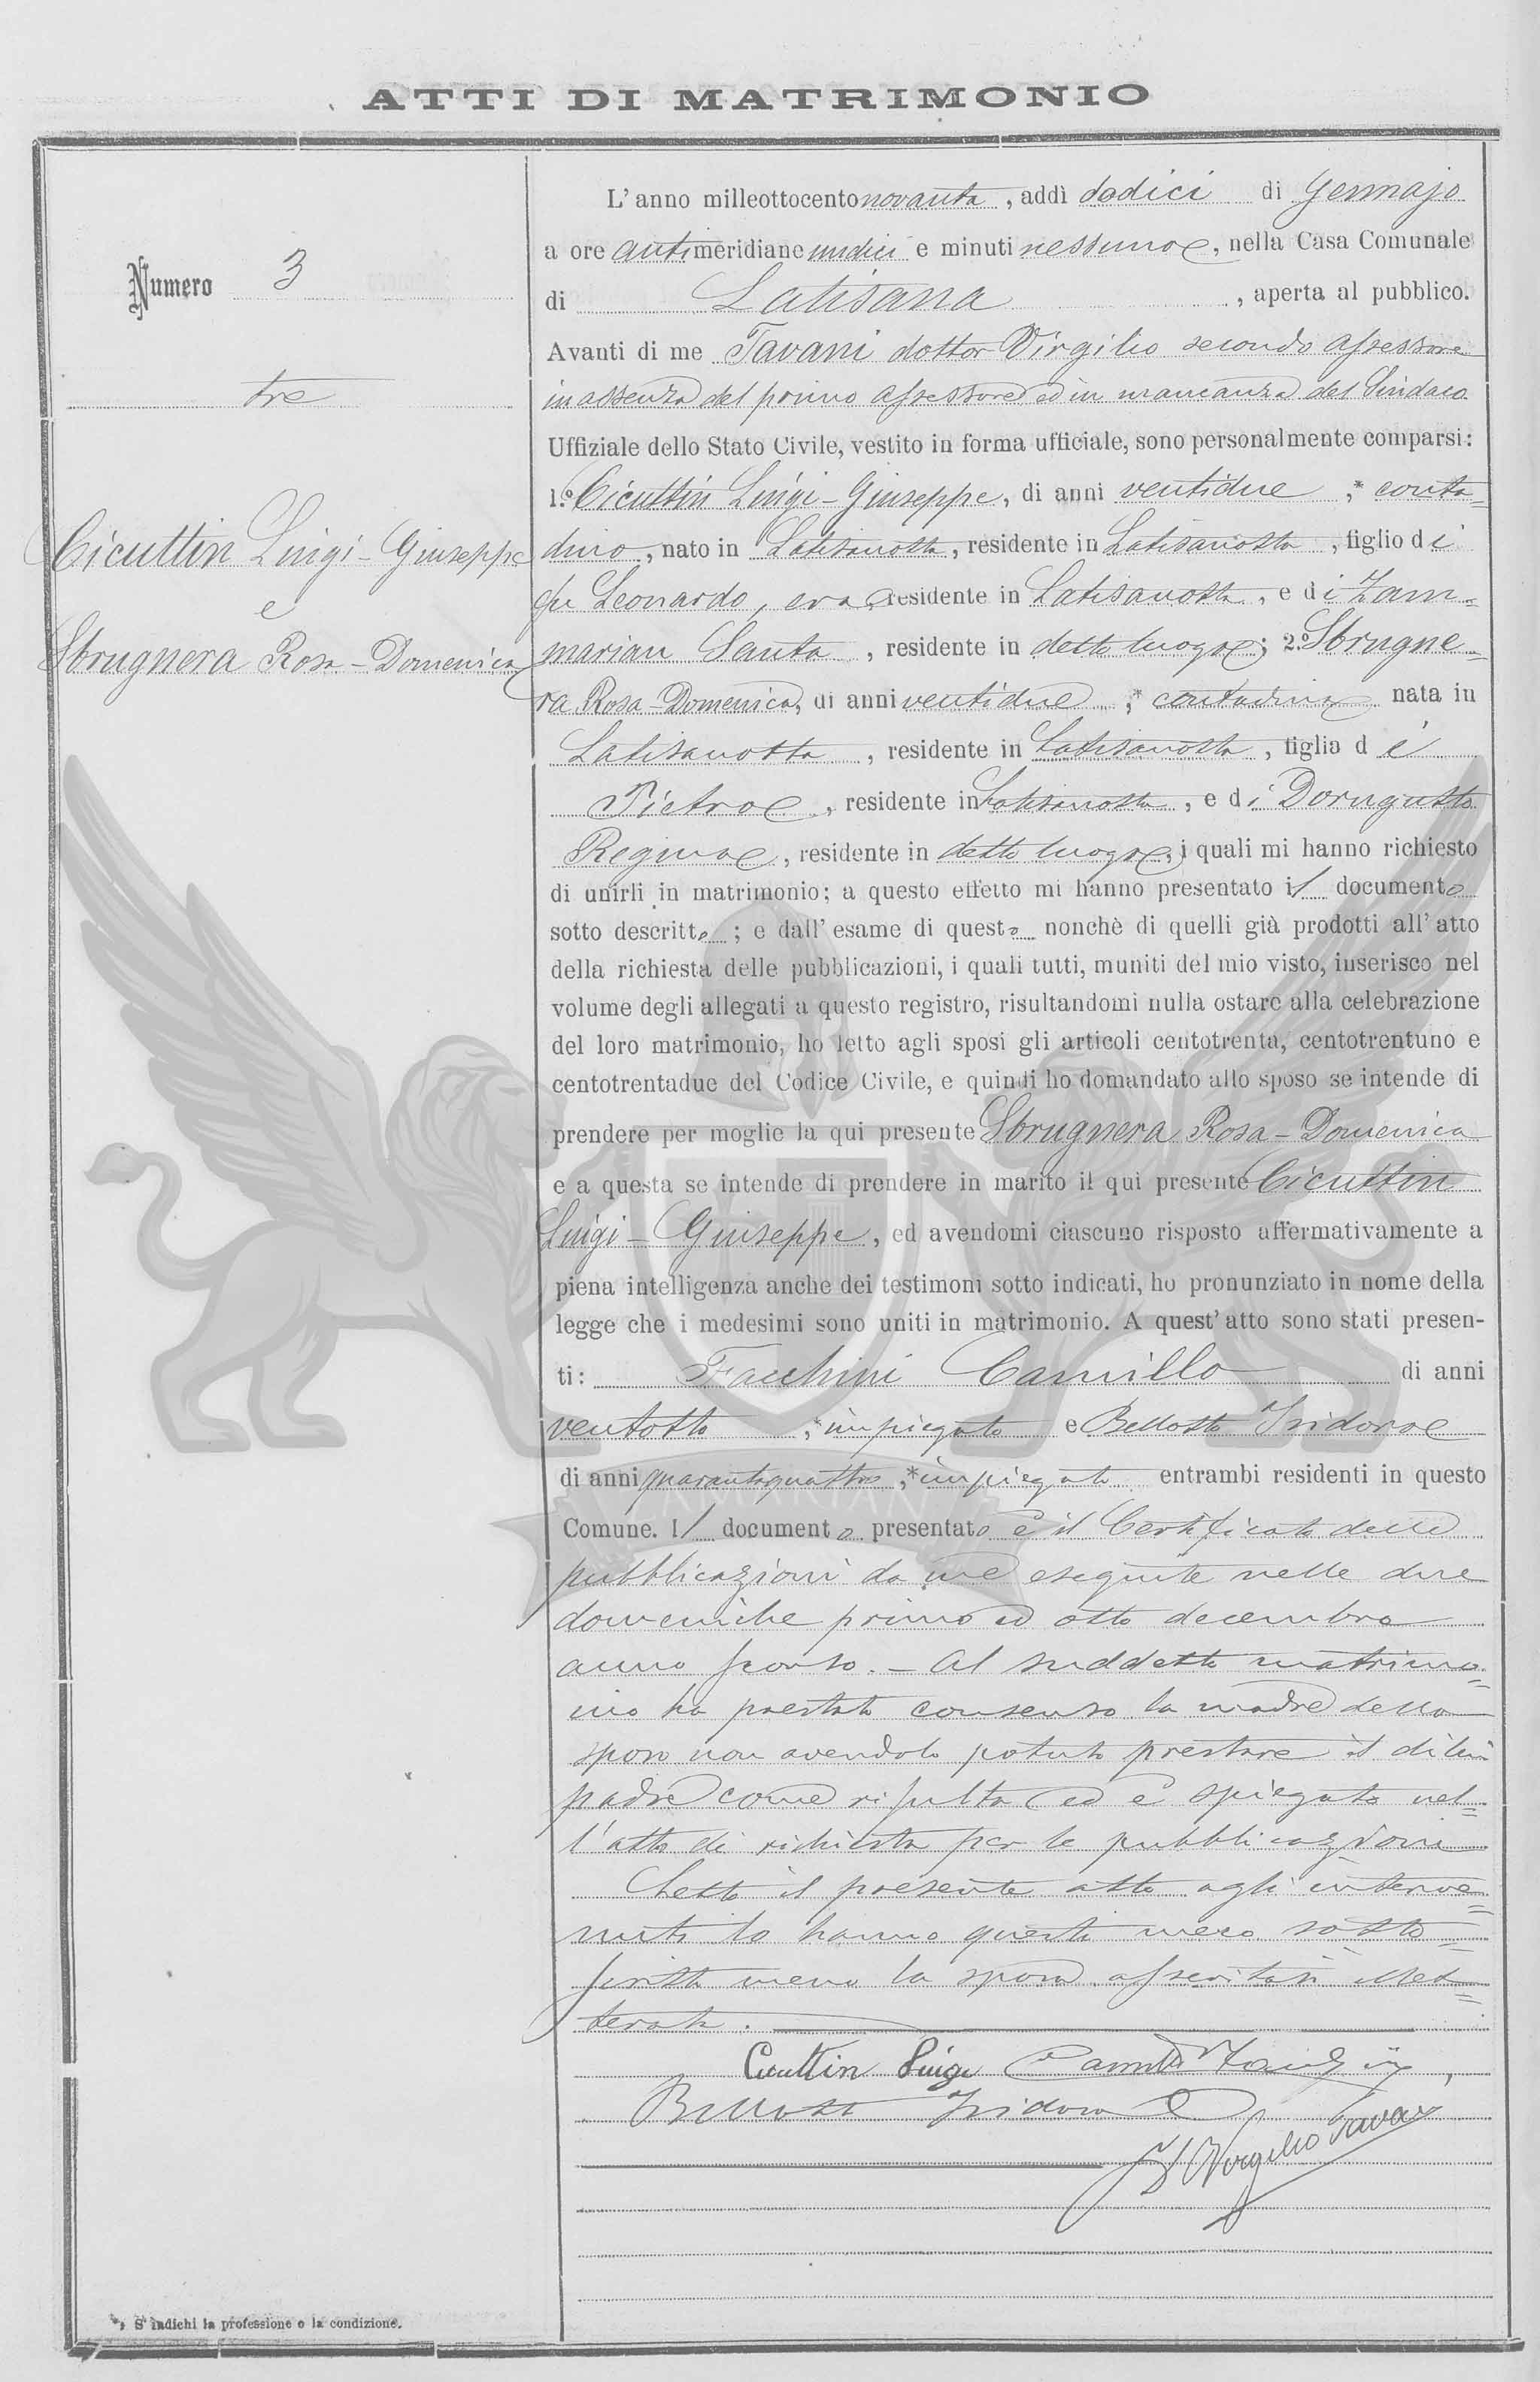 ATTI DI MATRIMONIO
Numero 3
tre
Cicuttin Luigi-Giuseppe
e
Sbrugnera Rosa-Domenica
L'anno milleottocentonovanta, addì dodici di Gennajo
a ore antimeridiane undici e minuti nessuno, nella Casa Comunale
di Latisana, aperta al pubblico.
Avanti di me Tavani dottor Virgilio secondo assessore
in assenza del primo assessore ed in mancanza del Sindaco
Uffiziale dello Stato Civile, vestito in forma ufficiale, sono personalmente comparsi:
1.º Cicuttin Luigi-Giuseppe, di anni ventidue, * conta=
dino, nato in Latisanotta, residente in Latisanotta, figlio di
fu Leonardo, era residente in Latisanotta, e di Zam=
marian Santa, residente in detto luogo; 2.º Sbrugne=
ra Rosa-Domenica, di anni ventidue, * contadina nata in
Latisanotta, residente in Latisanotta, figlia di
Pietro, residente in Latisanotta, e di Dorugutto
Regina, residente in detto luogo, i quali mi hanno richiesto
di unirli in matrimonio; a questo effetto mi hanno presentato il documento
sotto descritto; e dall'esame di questo nonchè di quelli già prodotti all'atto
della richiesta delle pubblicazioni, i quali tutti, muniti del mio visto, inserisco nel
volume degli allegati a questo registro, risultandomi nulla ostare alla celebrazione
del loro matrimonio, ho letto agli sposi gli articoli centotrenta, centotrentuno e
centotrentadue del Codice Civile, e quindi ho domandato allo sposo se intende di
prendere per moglie la qui presente Sbrugnera Rosa-Domenica
e a questa se intende di prendere in marito il qui presente Cicuttin
Luigi-Giuseppe, ed avendomi ciascuno risposto affermativamente a
piena intelligenza anche dei testimoni sotto indicati, ho pronunziato in nome della
legge che i medesimi sono uniti in matrimonio. A quest'atto sono stati presen-
ti: Facchini Camillo di anni
ventotto, * impiegato e Bellotto Isidoro
di anni quarantaquattro, * impiegato entrambi residenti in questo
Comune. Il documento presentato è il Certificato delle
pubblicazioni da me eseguite nelle due
domeniche primo ed otto decembre
anno scorso. - Al suddetto matrimo=
nio ha prestato consenso la madre dello
sposo non avendolo potuto prestare il di lui
padre come risulta ed è spiegato nel=
l'atto di richiesta per le pubblicazioni
Letto il presente atto agli interve=
nuti lo hanno questi meco sotto=
scritto meno la sposa asseritasi illet=
terata.
Cicuttin Luigi Camillo Facchini
Bellotto Isidoro
Virgilio Tavani
*, S'indichi la professione o la condizione.